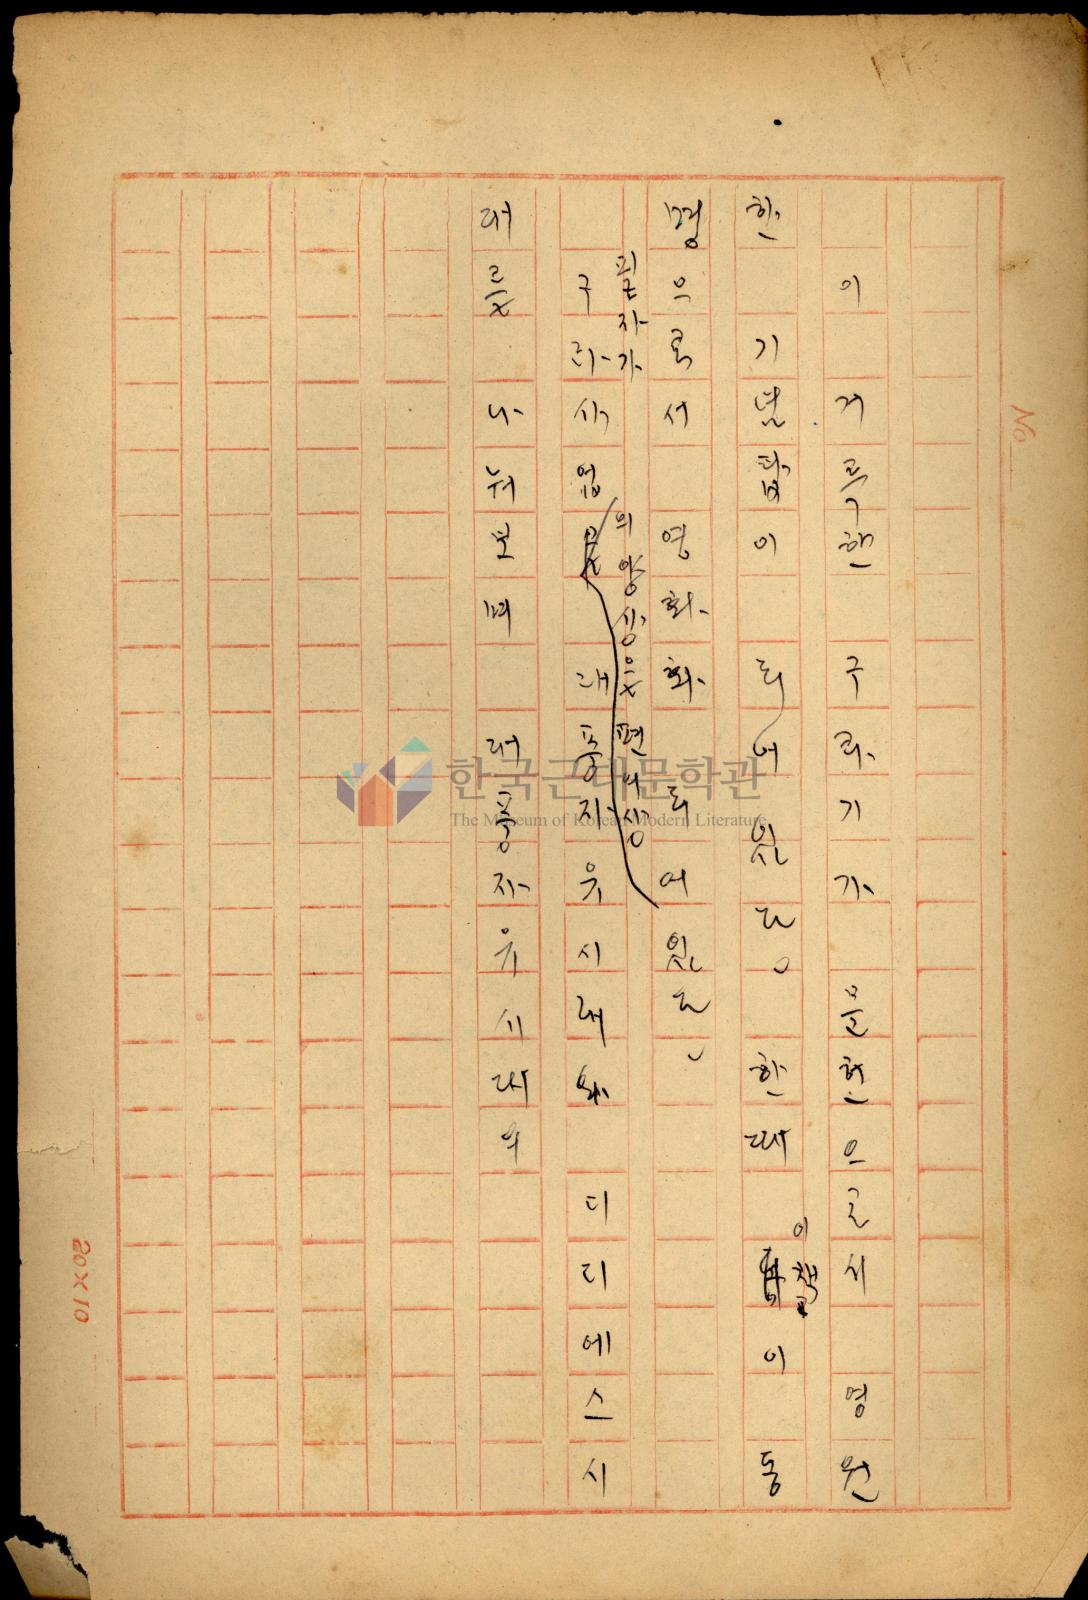 No
이 거룩한 구라기가 문헌으로서 영원
한 기념탑이 되어있고 한때 이책이 동
명으로서 영화화 되어 있고
필자가
구라사업의 양상은 편이상 대풍자유시대와 디디에스시
대로 나눠보며 대풍자유시대의
20×10
한국근대문학관
The Museum of Korean Modern Literature